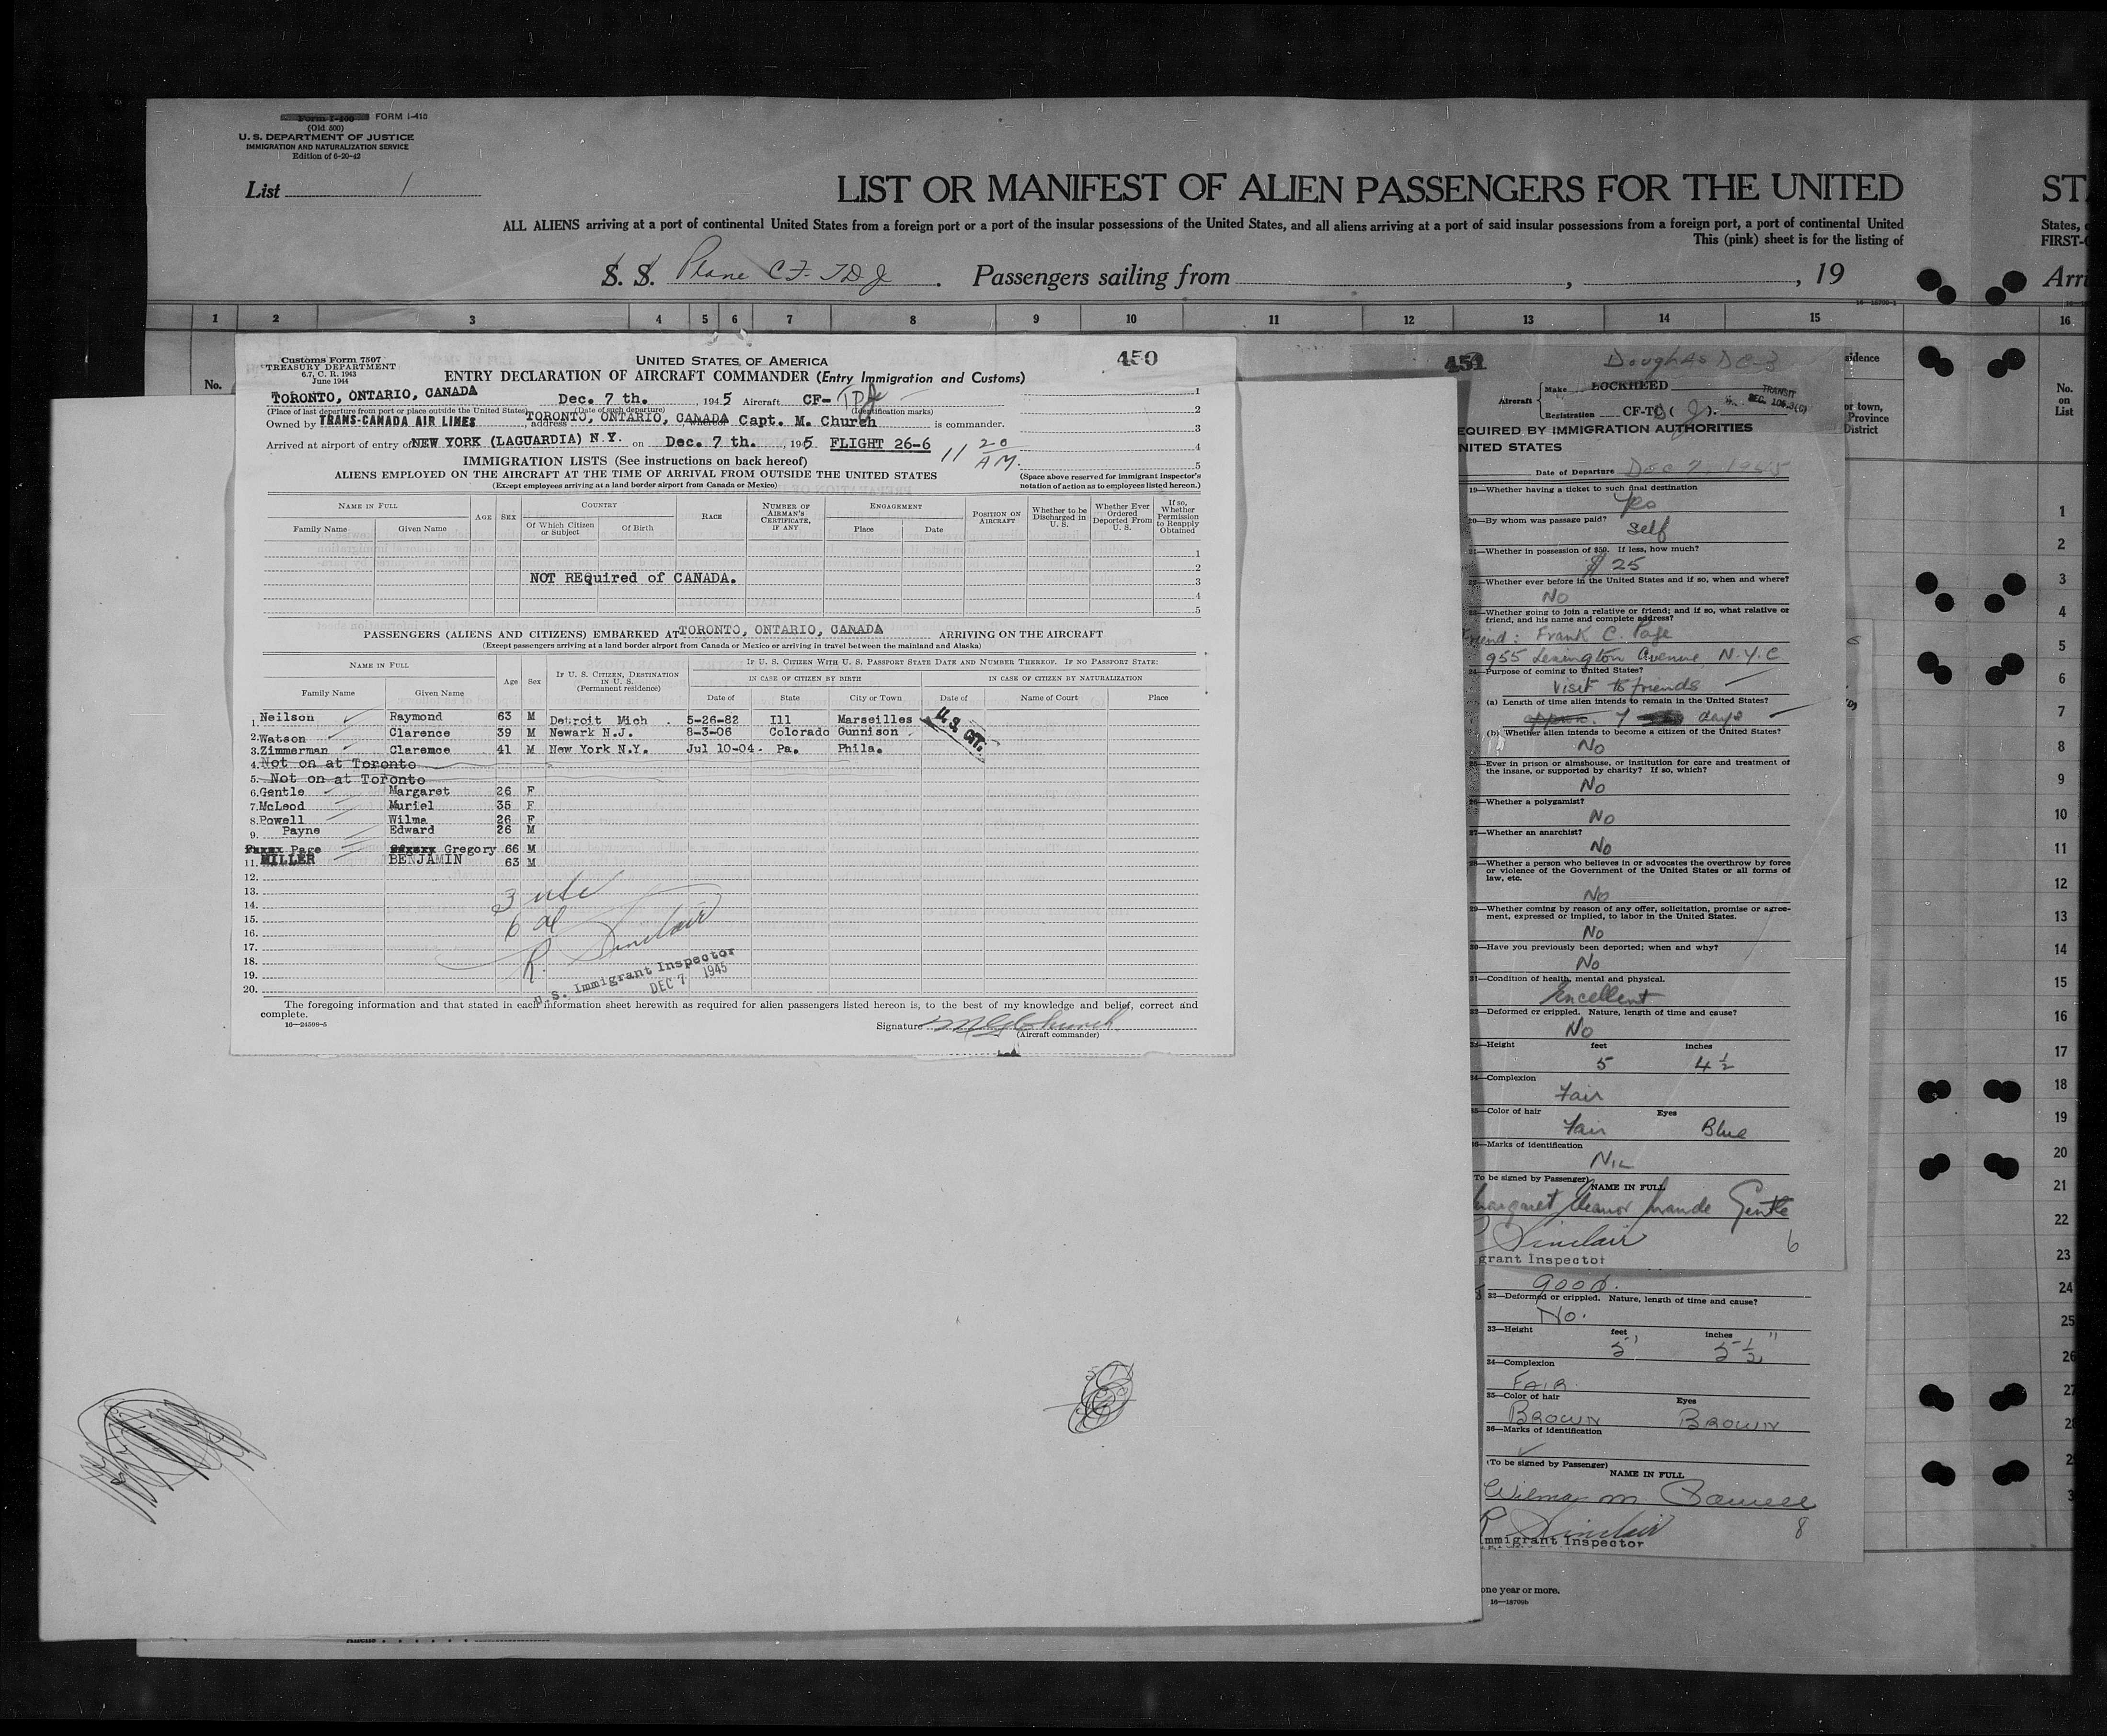 Form I-466 FORM I-415
(Old 500)
U. S. DEPARTMENT OF JUSTICE
IMMIGRATION AND NATURALIZATION SERVICE
Edition of 6-20-42
List 1
LIST OR MANIFEST OF ALIEN PASSENGERS FOR THE UNITED ST
ALL ALIENS arriving at a port of continental United States from a foreign port or a port of the insular possessions of the United States, and all aliens arriving at a port of said insular possessions from a foreign port, a port of continental United States,
This (pink) sheet is for the listing of FIRST-
S. S. Plane CF-TDJ. Passengers sailing from , , 19 Arri
1 2 3 4 5 6 7 8 9 10 11 12 13 14 15 16
No.
Customs Form 7507
TREASURY DEPARTMENT
6.7, C. R. 1943
June 1944
UNITED STATES OF AMERICA
450
ENTRY DECLARATION OF AIRCRAFT COMMANDER (Entry Immigration and Customs)
TORONTO, ONTARIO, CANADA Dec. 7 th. , 1945 Aircraft CF- TDJ
(Place of last departure from port or place outside the United States) (Date of such departure) (Identification marks)
Owned by TRANS-CANADA AIR LINES address TORONTO, ONTARIO, CANADA Capt. M. Church is commander.
Arrived at airport of entry of NEW YORK (LAGUARDIA) N.Y. on Dec. 7 th. 1945 FLIGHT 26-6 11 20 AM.
1
2
3
4
5
IMMIGRATION LISTS (See instructions on back hereof)
ALIENS EMPLOYED ON THE AIRCRAFT AT THE TIME OF ARRIVAL FROM OUTSIDE THE UNITED STATES
(Except employees arriving at a land border airport from Canada or Mexico)
(Space above reserved for immigrant inspector's notation of action as to employees listed hereon.)
NAME IN FULL
Family Name Given Name
AGE SEX
COUNTRY
Of Which Citizen or Subject Of Birth
RACE
NUMBER OF AIRMAN'S CERTIFICATE, IF ANY
ENGAGEMENT
Place Date
POSITION ON AIRCRAFT
Whether to be Discharged in U. S.
Whether Ever Ordered Deported From U. S.
If so, Whether Permission to Reapply Obtained
1
2
NOT REquired of CANADA. 3
4
5
PASSENGERS (ALIENS AND CITIZENS) EMBARKED AT TORONTO, ONTARIO, CANADA ARRIVING ON THE AIRCRAFT
(Except passengers arriving at a land border airport from Canada or Mexico or arriving in travel between the mainland and Alaska)
NAME IN FULL
Family Name Given Name
Age Sex
IF U. S. CITIZEN, DESTINATION IN U. S. (Permanent residence)
IF U. S. CITIZEN WITH U. S. PASSPORT STATE DATE AND NUMBER THEREOF. IF NO PASSPORT STATE:
IN CASE OF CITIZEN BY BIRTH IN CASE OF CITIZEN BY NATURALIZATION
Date of State City or Town Date of Name of Court Place
1. Neilson Raymond 63 M Detroit Mich . 5-26-82 Ill Marseilles U.S. CIT.
2. Watson Clarence 39 M Newark N.J. 8-3-06 Colorado Gunnison
3. Zimmerman Clarence 41 M New York N.Y. Jul 10-04. Pa. Phila.
4. Not on at Toronto
5. Not on at Toronto
6. Gentle Margaret 26 F
7. McLeod Muriel 35 F
8. Powell Wilma 26 F
9. Payne Edward 26 M
Page Gregory 66 M
11. MILLER BENJAMIN 63 M
12.
13.
14.
15.
16.
17.
18.
19.
20.
3 usc
6 al
R. Sinclair
U. S. Immigrant Inspector
DEC 7 1945
The foregoing information and that stated in each information sheet herewith as required for alien passengers listed hereon is, to the best of my knowledge and belief, correct and complete.
16—24598-5
Signature
(Aircraft commander)
451
Douglas DC-3
Aircraft { Make LOCKHEED
Registration CF-TC ( )
TRANSIT
SEC. 106.3(C)
EQUIRED BY IMMIGRATION AUTHORITIES
NITED STATES
Date of Departure Dec 7, 1945
19—Whether having a ticket to such final destination
Yes
20—By whom was passage paid?
Self
21—Whether in possession of $50. If less, how much?
$ 25
22—Whether ever before in the United States and if so, when and where?
No
23—Whether going to join a relative or friend; and if so, what relative or friend, and his name and complete address?
Friend: Frank C. Page
955 Lexington Avenue, N.Y.C
24—Purpose of coming to United States?
Visit to friends
(a) Length of time alien intends to remain in the United States?
approx. 7 days
(b) Whether alien intends to become a citizen of the United States?
No
25—Ever in prison or almshouse, or institution for care and treatment of the insane, or supported by charity? If so, which?
No
26—Whether a polygamist?
No
27—Whether an anarchist?
No
28—Whether a person who believes in or advocates the overthrow by force or violence of the Government of the United States or all forms of law, etc.
No
29—Whether coming by reason of any offer, solicitation, promise or agreement, expressed or implied, to labor in the United States.
No
30—Have you previously been deported; when and why?
No
31—Condition of health, mental and physical.
Excellent
32—Deformed or crippled. Nature, length of time and cause?
No
33—Height feet inches
5 4 ½
34—Complexion
Fair
35—Color of hair Eyes
Fair Blue
36—Marks of identification
NIL
To be signed by Passenger)
NAME IN FULL
Margaret Eleanor Gentle
Sinclair 6
grant Inspector
good.
32—Deformed or crippled. Nature, length of time and cause?
No.
33—Height feet inches
5' 5 ½"
34—Complexion
FAIR
35—Color of hair Eyes
BROWN BROWN
36—Marks of identification
(To be signed by Passenger)
NAME IN FULL
Wilma M Powell
R Sinclair 8
mmigrant Inspector
one year or more.
16—18709b
sidence
or town,
Province
District
No.
on
List
1
2
3
4
5
6
7
8
9
10
11
12
13
14
15
16
17
18
19
20
21
22
23
24
25
26
27
2
2
3